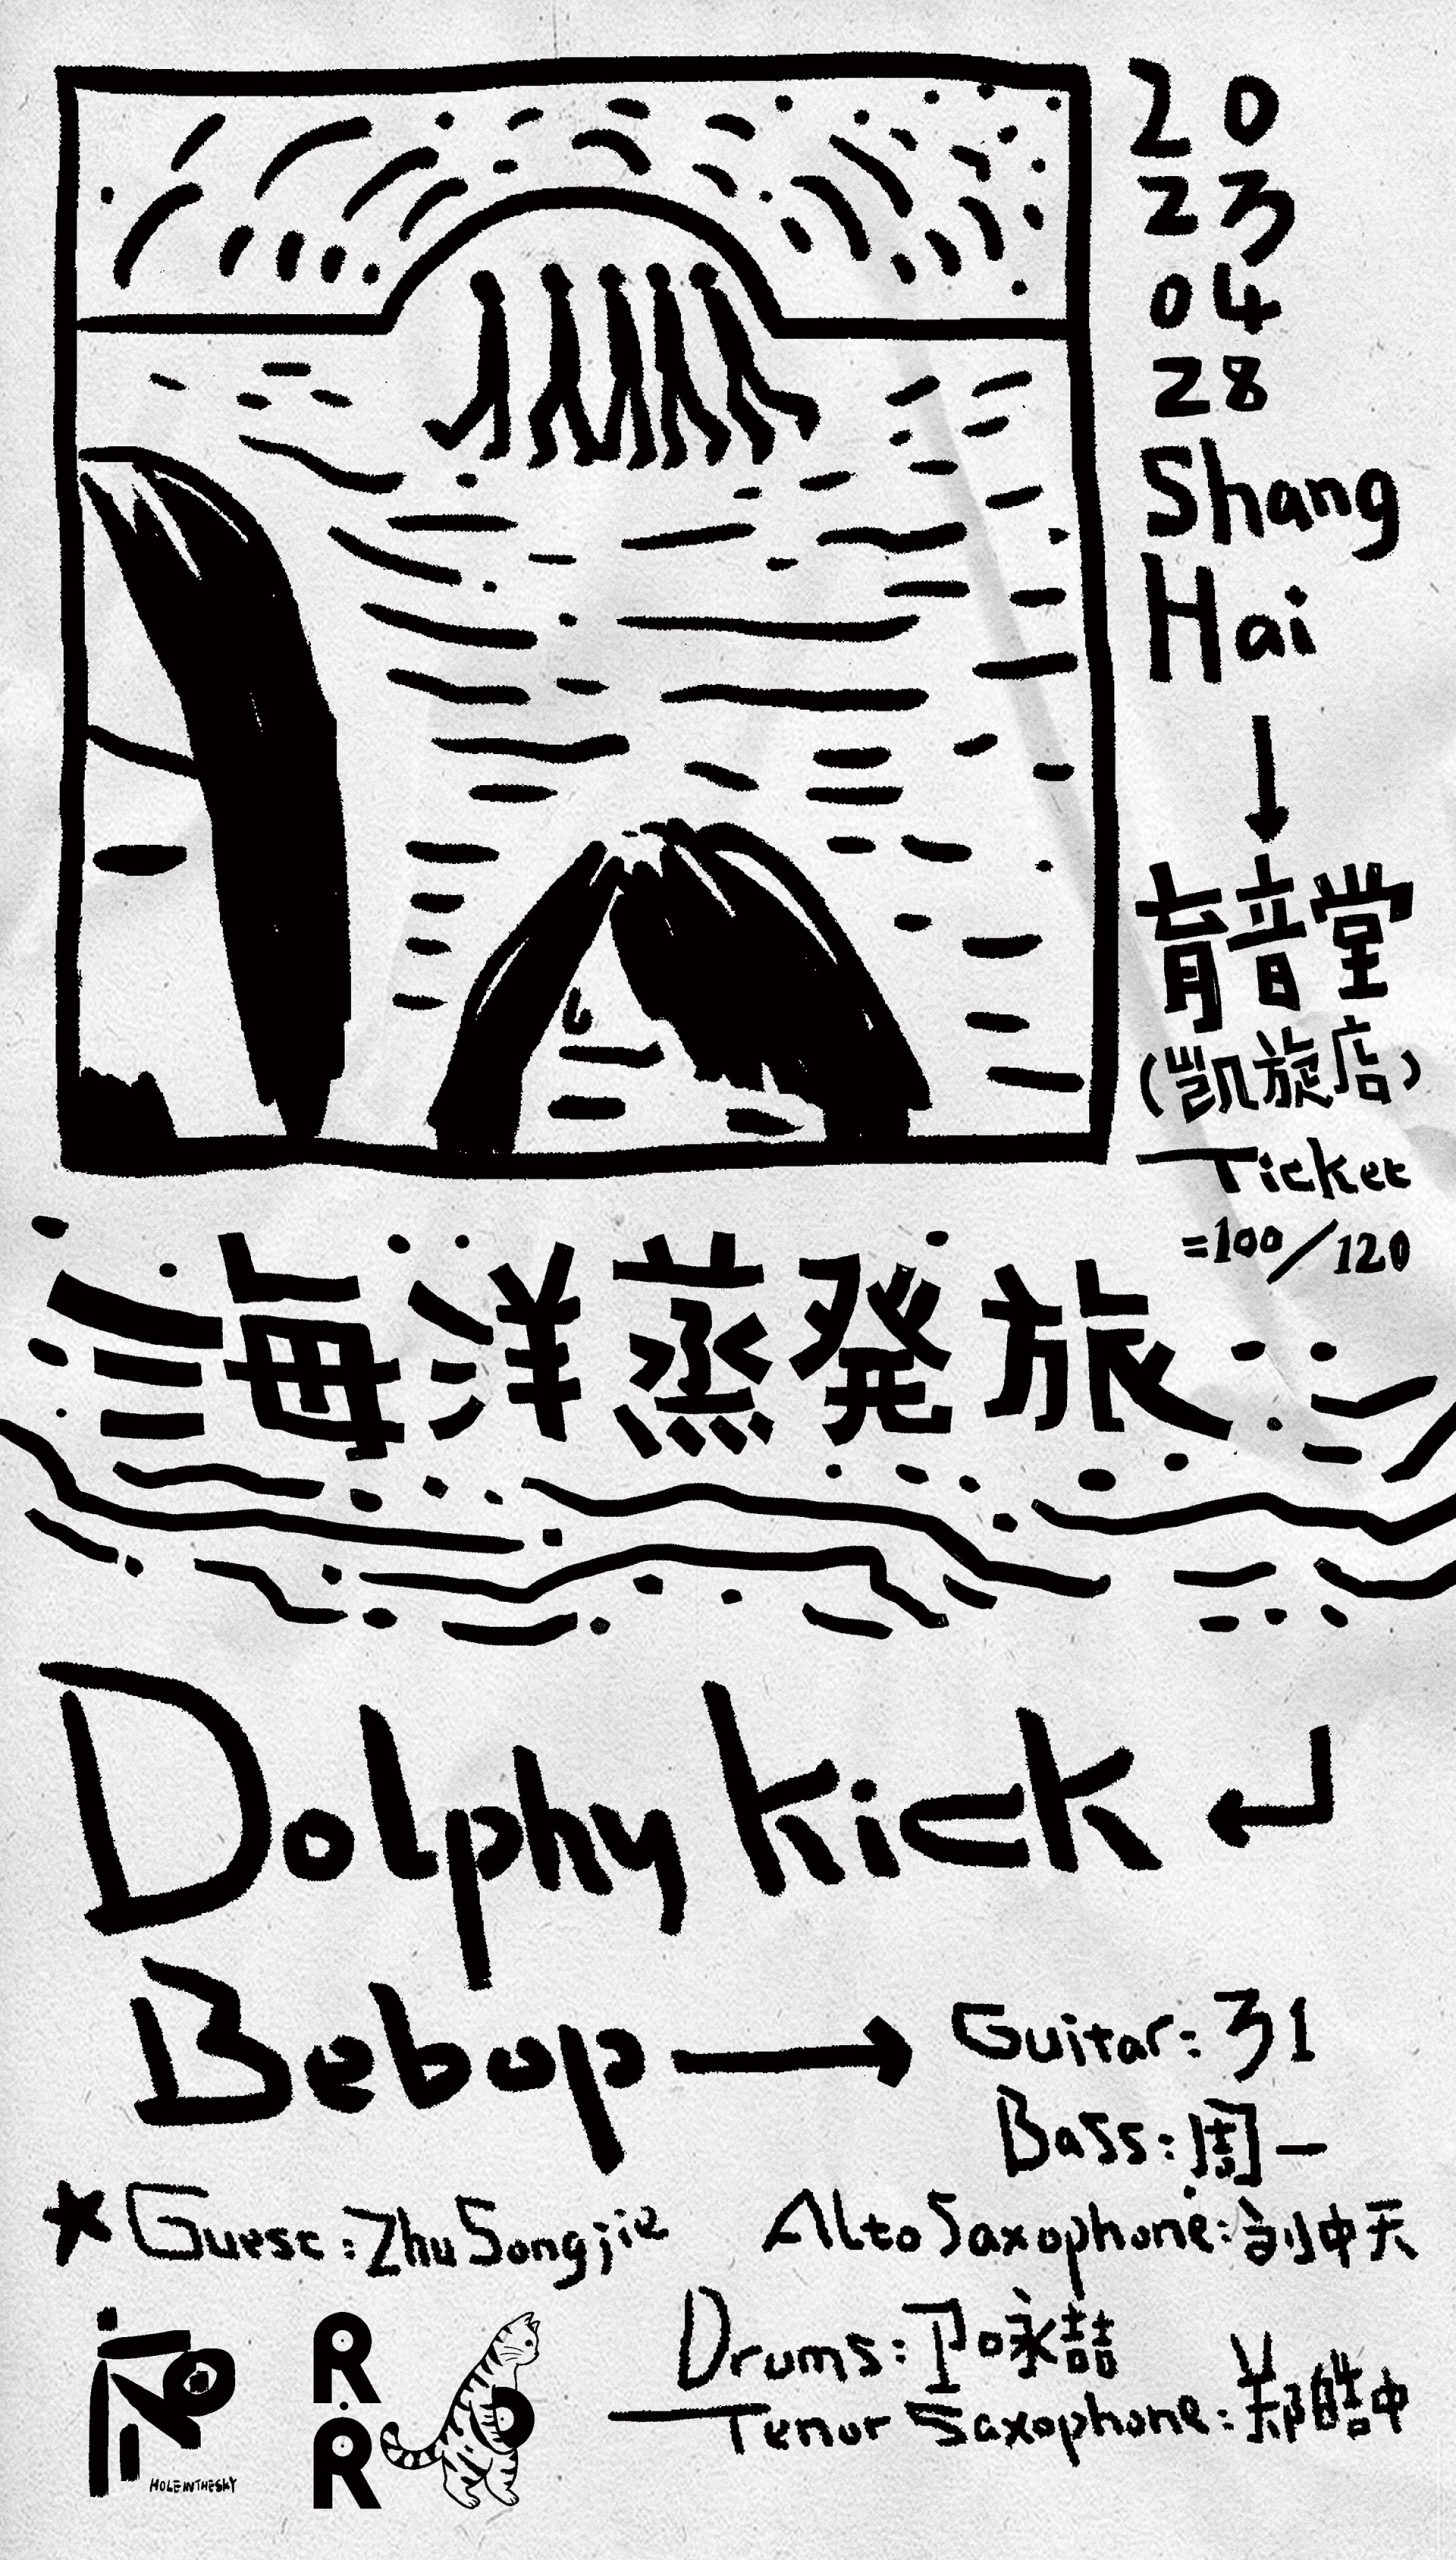 20
23
04
28
Shang
Hai
育音堂
(凯旋店)
Ticket
=100/120
海洋蒸発旅
Dolphy Kick
Bebop
Guitar: 31
Bass: 周一
★Guest: Zhu Songjie
Alto Saxophone: 刘中天
Drums: 卫咏喆
Tenor Saxophone:
HOLE IN THE SKY
R
R